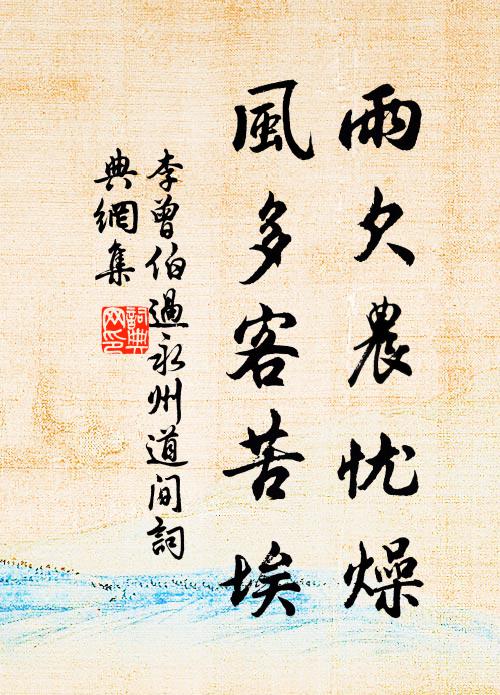 雨欠農忧燥
風多客苦埃
李曾伯過永州道间詞
典網集
詞典网印